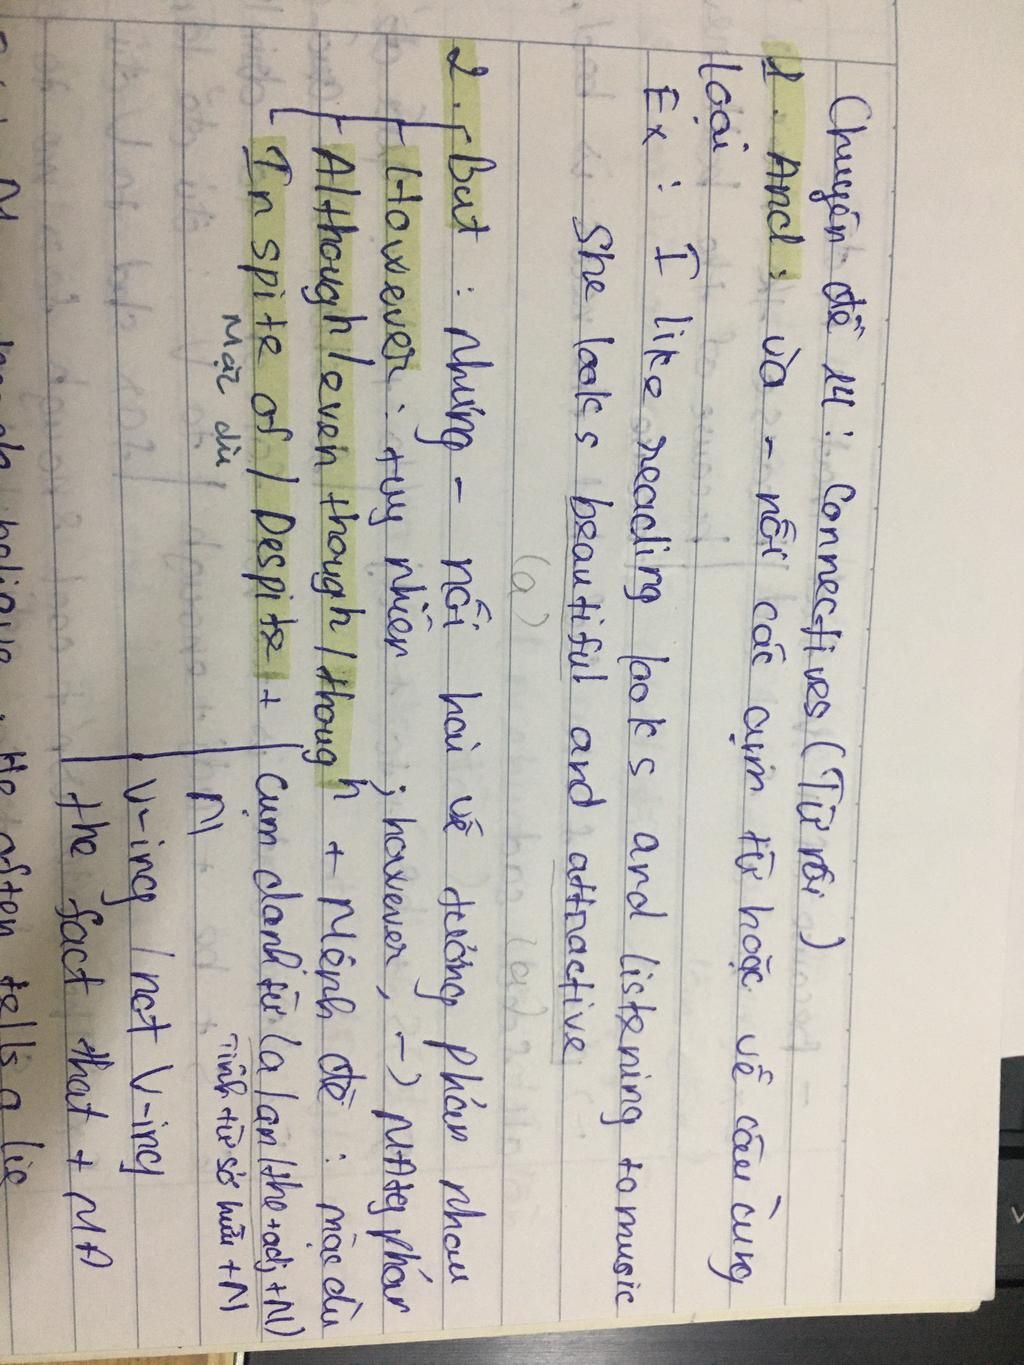 Chuyên đề 14: Connectives (Từ nối)
1. And: và - nối các cụm từ hoặc vế câu cùng
loại
Ex: I like reading books and listening to music
She looks beautiful and attractive
2. But: nhưng - nối hai vế tương phản nhau
However: tuy nhiên ; however, -> MĐ tg phản
Although / even though / though + Mệnh đề: mặc dù
In spite of / Despite + Cụm danh từ (a/an/the+adj+N)
mặc dù tính từ sở hữu + N
N
V-ing / not V-ing
the fact that + MĐ
He often tells a lie